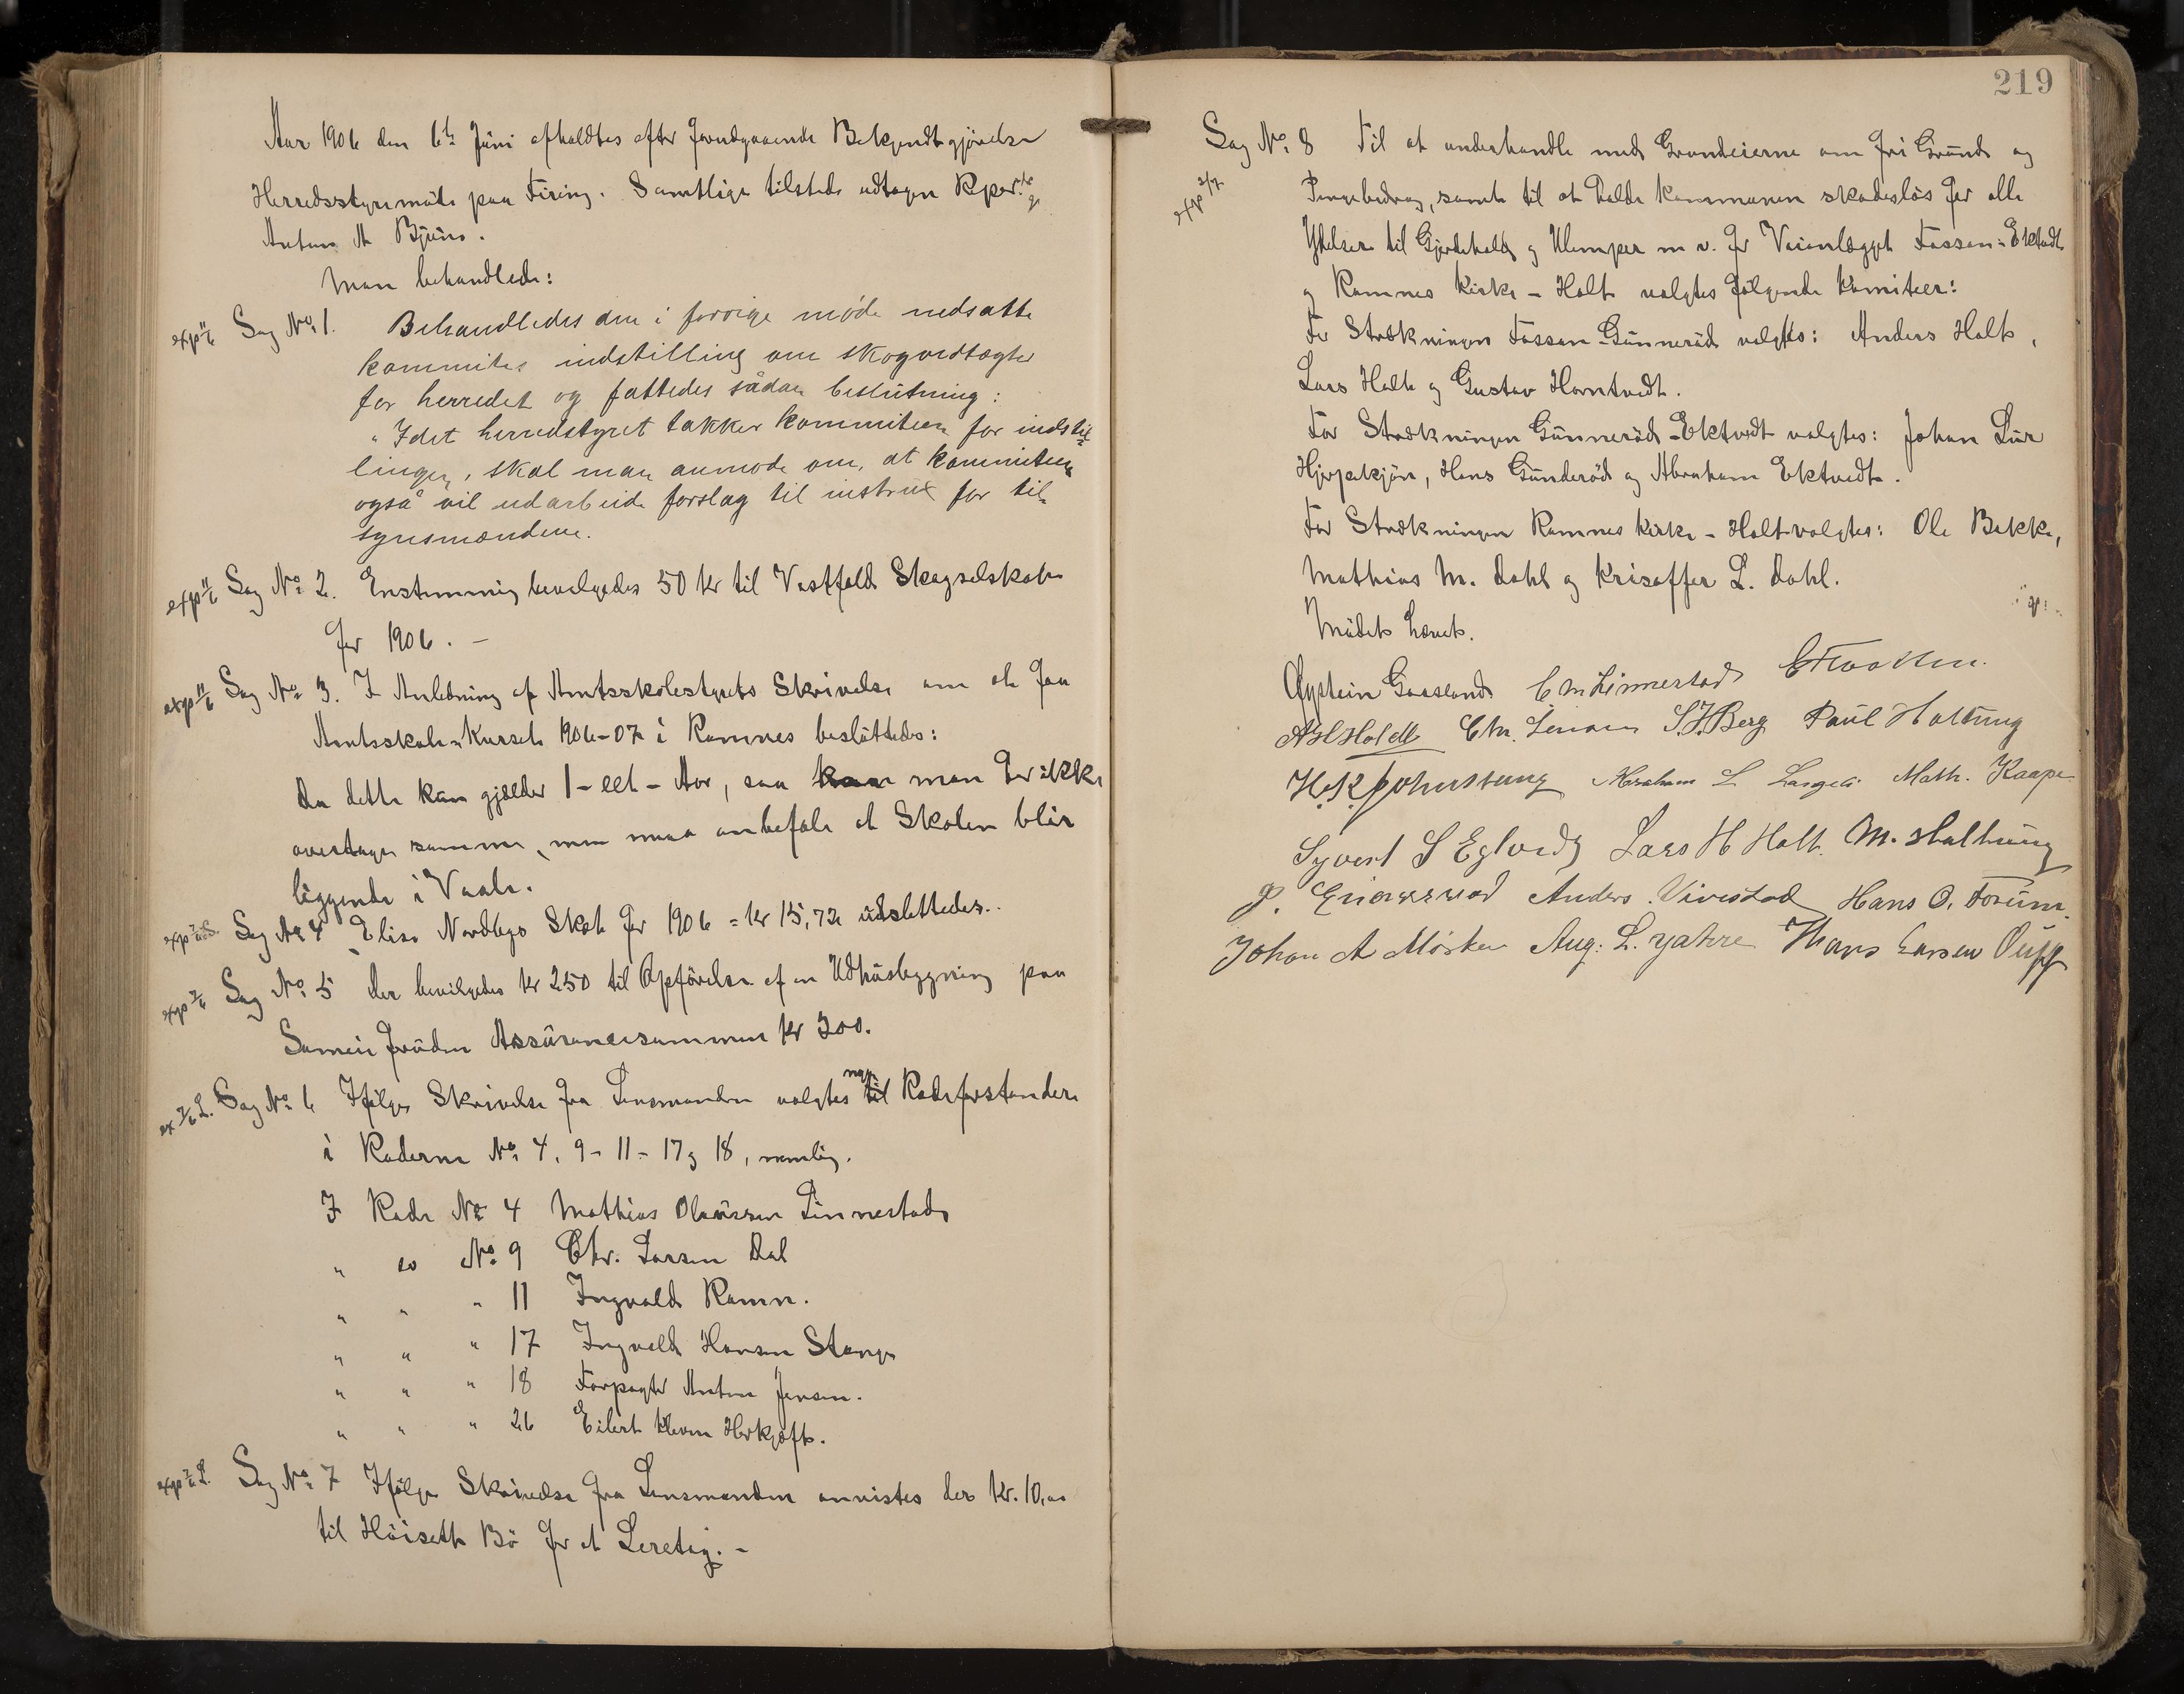 Aar 1906 den 6te Juni afholdtes efter forudgaaende Bekjendtgjørelse
Herredsstyremøde paa Firing. Samtlige tilstede udtagen Rper.
Anton A Bjuno.
Man behandlede:
exp 11/6 Sag No. 1. Behandledes den i forrige møde nedsatte
kommites indstilling om skogvedtægter
for herredet og fattedes sådan beslutning:
"Idet herredstyret takker kommiteen for indstil-
lingen, skal man anmode om, at kommiteen
også vil udarbeide forslag til instrux for til-
synsmændene.
exp 11/6 Sag No. 2. Enstemmig bevilgedes 50 kr til Vestfold Skogselskab
for 1906. –
exp 11/6 Sag No. 3. I Anledning af Amtsskolestyrets Skrivelse om at faa
Amtsskole-Kurset 1906-07 i Ramnes besluttedes:
Da dette kun gjælder 1 - eet - Aar, saa kan man før ikke
overtage samme, men maa anbefale at Skolen blir
liggende i Vaale.
exp Sag No 4 Elise Nordbys Skat for 1906 = kr 15,72 udslettedes..
exp 7/6 Sag No. 5 Der bevilgedes kr 250 til Opførelse af en Udhusbygning paa
Sameie foruden Assurancesummen kr 300.
ex 7/6 L. Sag No. 6 Ifølge Skrivelse fra Lensmanden valgtes nye til Rodeforstandere
i Roderne No. 4, 9 - 11 - 17 og 18, nemlig.
I Rode No. 4 Mathias Olaussen Linnestad
" do No. 9 Chr. Larsen Dal
" " " 11 Ingvald Ramn.
" " " 17 Ingvald Hansen Stange
" " " 18 Forpagter Anton Jensen.
" " " 26 Eilert Kleven Herkjøft.
exp 7/6 L. Sag No. 7 Ifølge Skrivelse fra Lensmanden anvistes der kr. 10,00
til Höiseth Bö for et Leretag. –
219
Sag No. 8 Til at underhandle med Grundeierne om fri Grund og
exp 3/7 Pengebidrag, samt til at holde Kommunen skadesløs for alle
Ydelser til Gjerdehold og Ulemper m v. for Veianlægget Fossan - Ektvedt
og Ramnes Kirke - Holt valgtes følgende Komiteer:
For Strækningen Fossan - Gunneröd valgtes: Anders Holt,
Lars Holt og Gustav Horntvedt.
For Strækningen Gunneröd - Ektvedt valgtes: Johan Lur
Hjerpekjön, Hans Gunderöd og Abraham Ektvedt.
For Strækningen Ramnes Kirke - Holt valgtes: Ole Bakke,
Mathias M. Dahl og Krisoffer L. Dahl.
Mødet hævet.
Øystein Gaasland C M Linnestad
Chr. S.J. Berg Paul Haltung
H.K. Johnstang Abraham L Math. Kaape
Syvert S Eglvedt Lars H Holt. M. Haltung
P. Anders Vivestad Hans O. Forum.
Johan A Mörken Aug: L. Jahre Hans Larsen